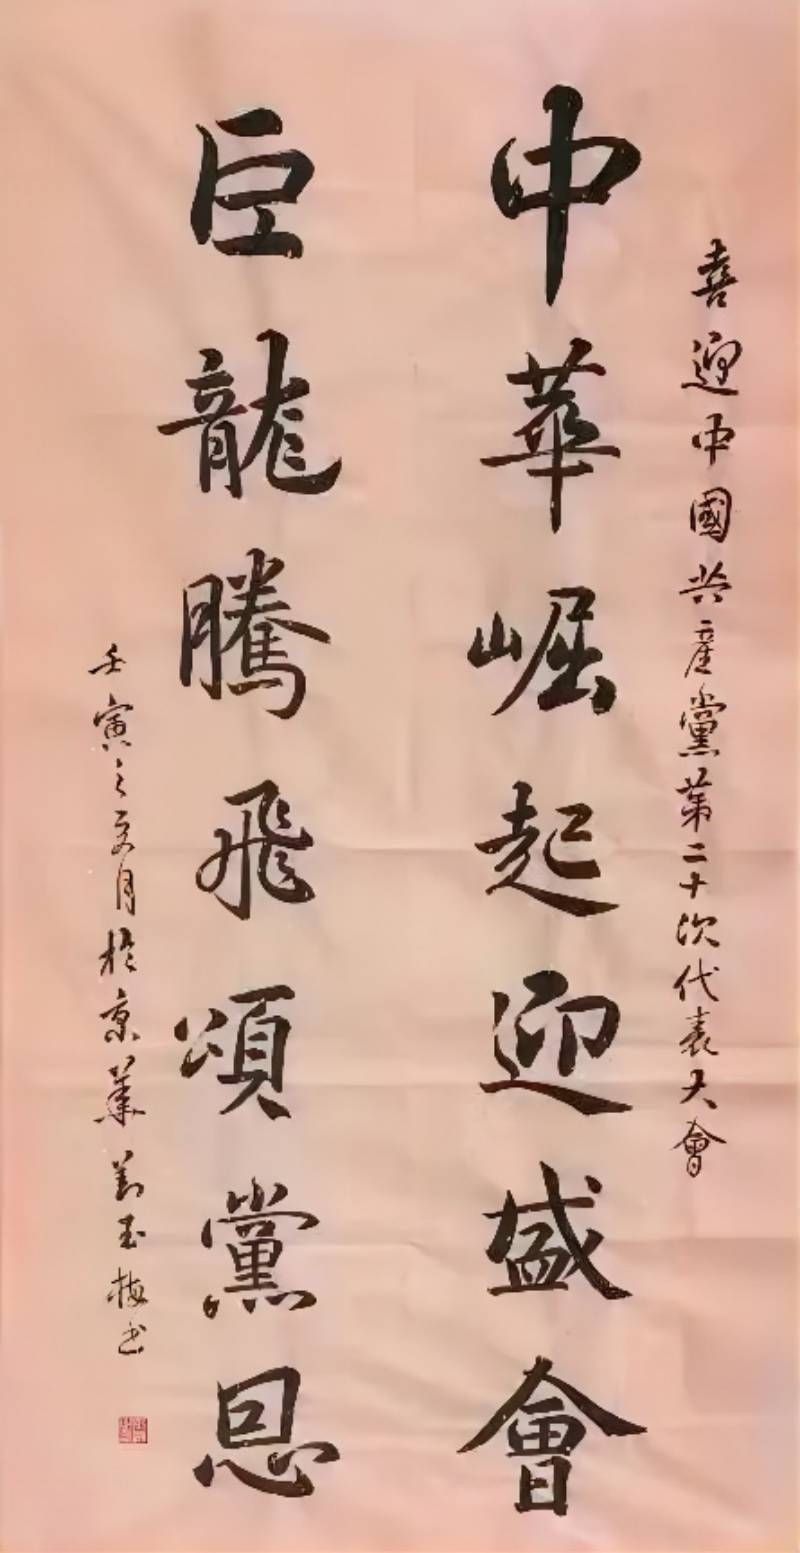 喜迎中國共產黨第二十次代表大會
中華崛起迎盛會
巨龍騰飛頌黨恩
壬寅之夏月於京華劉玉梅书